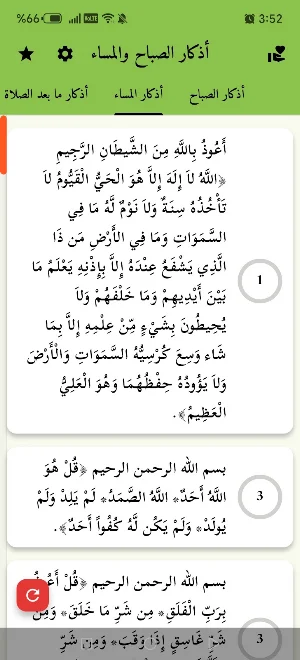 %66 VoLTE 3:52
أذكار الصباح والمساء
أذكار الصباح
أذكار المساء
أذكار ما بعد الصلاة
أَعُوذُ بِاللَّهِ مِنَ الشَّيطَانِ الرَّجِيمِ
﴿اللَّهُ لاَ إِلَهَ إِلاَّ هُوَ الْحَيُّ الْقَيُّومُ لاَ
تَأْخُذُهُ سِنَةٌ وَلاَ نَوْمٌ لَّهُ مَا فِي
السَّمَوَاتِ وَمَا فِي الأَرْضِ مَن ذَا
الَّذِي يَشْفَعُ عِنْدَهُ إِلاَّ بِإِذْنِهِ يَعْلَمُ مَا
بَيْنَ أَيْدِيهِمْ وَمَا خَلْفَهُمْ وَلاَ
يُحِيطُونَ بِشَيْءٍ مِّنْ عِلْمِهِ إِلاَّ بِمَا
شَاء وَسِعَ كُرْسِيُّهُ السَّمَوَاتِ وَالْأَرْضَ
وَلاَ يَؤُودُهُ حِفْظُهُمَا وَهُوَ الْعَلِيُّ
الْعَظِيمُ﴾.
1
بسم الله الرحمن الرحيم ﴿قُلْ هُوَ
اللَّهُ أَحَدٌ* اللَّهُ الصَّمَدُ* لَمْ يَلِدْ وَلَمْ
يُولَدْ* وَلَمْ يَكُن لَّهُ كُفُواً أَحَدٌ﴾.
3
بسم الله الرحمن الرحيم ﴿قُلْ أَعُوذُ
بِرَبِّ الْفَلَقِ* مِن شَرِّ مَا خَلَقَ* وَمِن
شَرِّ غَاسِقٍ إِذَا وَقَبَ* وَمِن شَرِّ
3